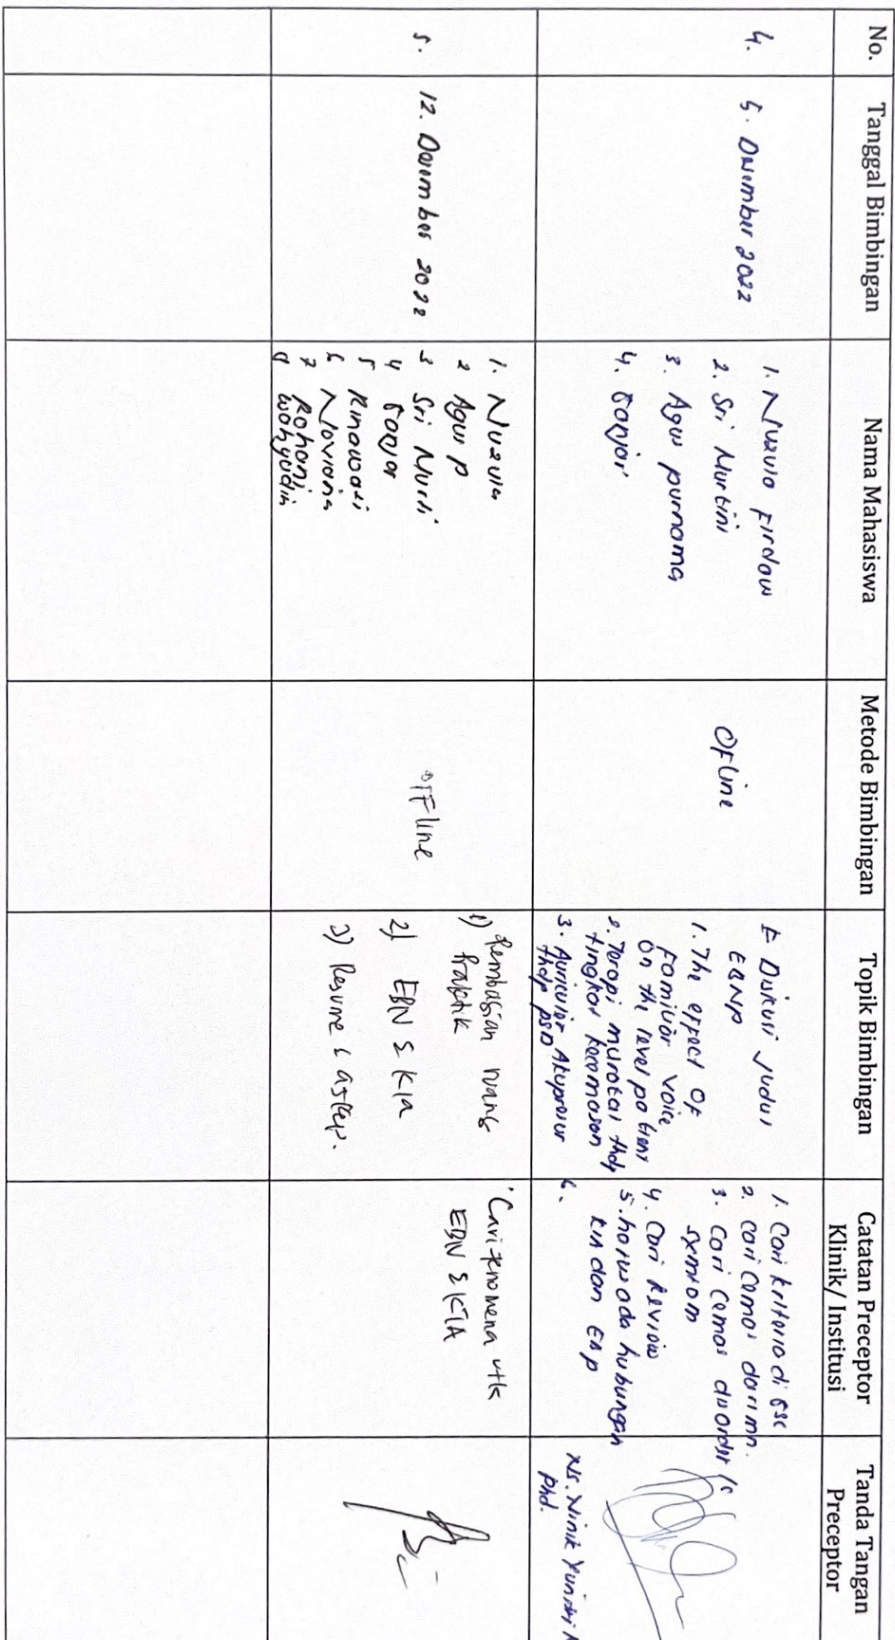 No.
Tanggal Bimbingan
Nama Mahasiswa
Metode Bimbingan
Topik Bimbingan
Catatan Preceptor
Klinik/ Institusi
Tanda Tangan
Preceptor
4.
5. Desember 2022
1. Nuzula Firdaus
2. Sri Murtini
3. Agus purnama
4. Ganjar
Ofline
Diskusi Judul
EBNP
1. The effect Of
Familiar voice
On the level patient
2. Terapi murotal thdp
tingkat kecemasan
3. Auricular Akupresur
thdp
1. Cari kriteria di
2. Cari Cemas dari mn.
3. Cari Cemas
4. Cari Review
5. harus ada hubungan
KIA dan EBP
6.
Ns. Ninik Yunitri
Phd.
5.
12. Desember 2022
1. Nuzula
2 Agus P
3 Sri Murti
4 Ganjar
5 Rinawati
6 Noviana
7 Rohani
9 Wahyudin
Offline
1) Pembagian ruang
Praktik
2) EBN & KIA
3) Resume & askep.
Cari fenomena utk
EBN & KIA